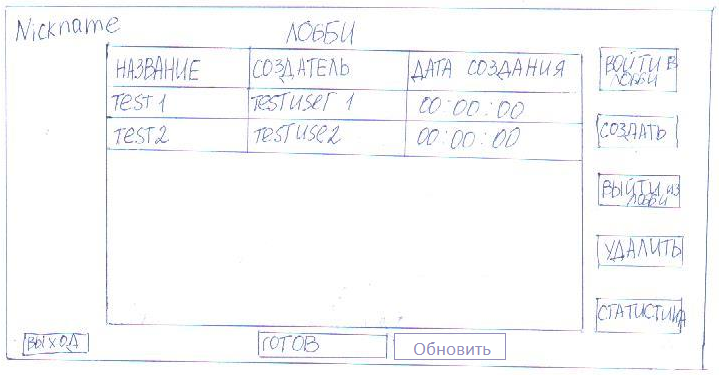 Nickname
ЛОББИ
НАЗВАНИЕ СОЗДАТЕЛЬ ДАТА СОЗДАНИЯ
Test 1 Testuser 1 00:00:00
Test 2 Testuse2 00:00:00
ВОЙТИ В
ЛОББИ
СОЗДАТЬ
ВЫЙТИ ИЗ
ЛОББИ
УДАЛИТЬ
СТАТИСТИКА
ВЫХОД
ГОТОВ
Обновить